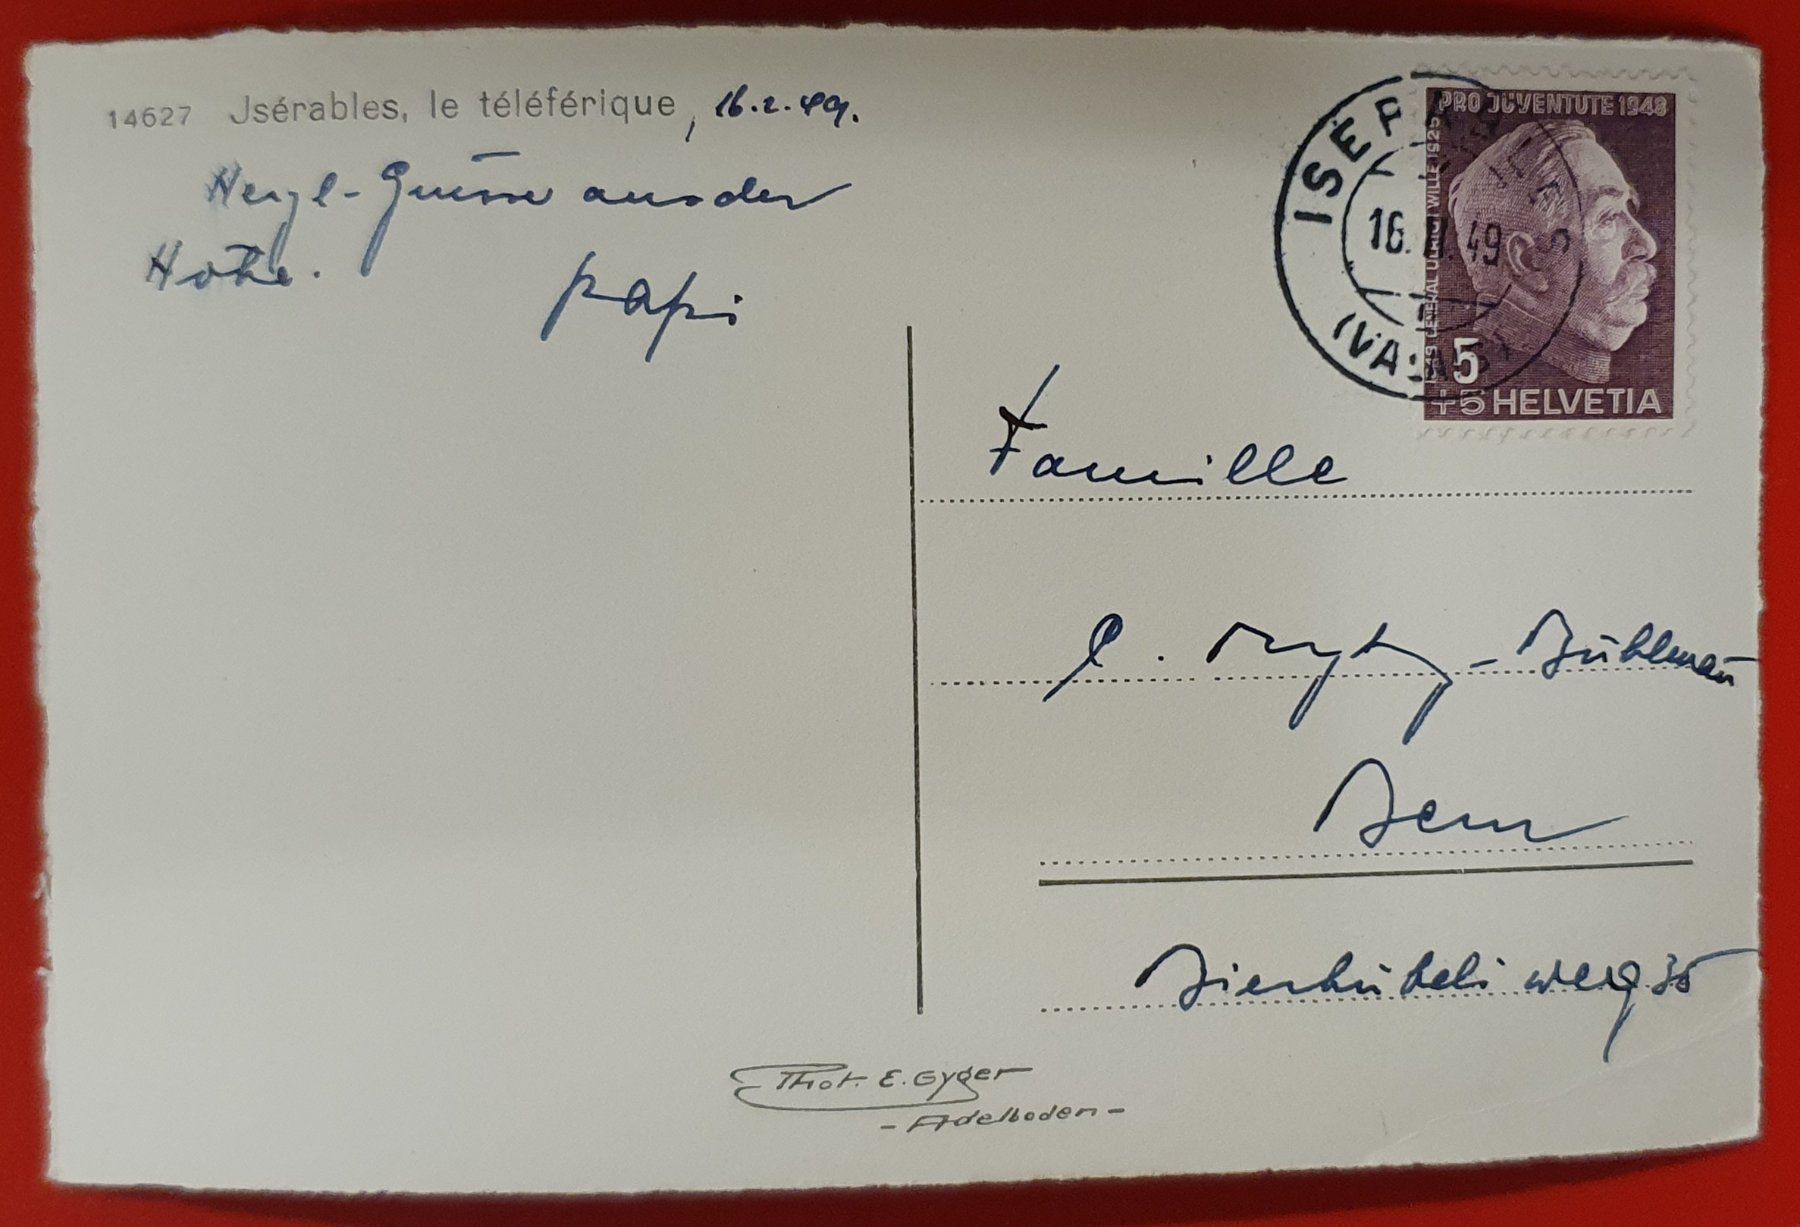 14627 Jsérables, le téléférique, 16.2.49.
Herzl-Grüsse aus der
Höhe.
papi
ISÉRABLES
16.II.49
(VALAIS)
PRO JUVENTUTE 1948
1848 GENERAL ULRICH WILLE 1925
5
+5 HELVETIA
Famille
-Bühlman
Bern
Bierhübeliweg 35
Phot. E. Gyger
-Adelboden-